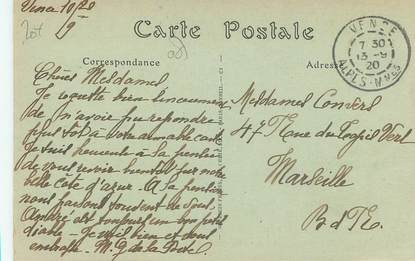 Vence 10/20
9
Carte Postale
Correspondance
Adresse
VENCE
7 30
13 - 9
20
ALPES-Mmes
Chères Mesdames
Je regrette bien
de n'avoir pu répondre
plus tôt à votre aimable carte
Je suis heureuse à la pensée
de vous revoir bientôt sur notre
belle Côte d'azur. A la pension
nous parlons souvent de vous
André est toujours un bon petit
diable - Je vais bien et vous
embrasse - M. J. de la
Mesdames
47 Rue du Vert
Marseille
B d R.